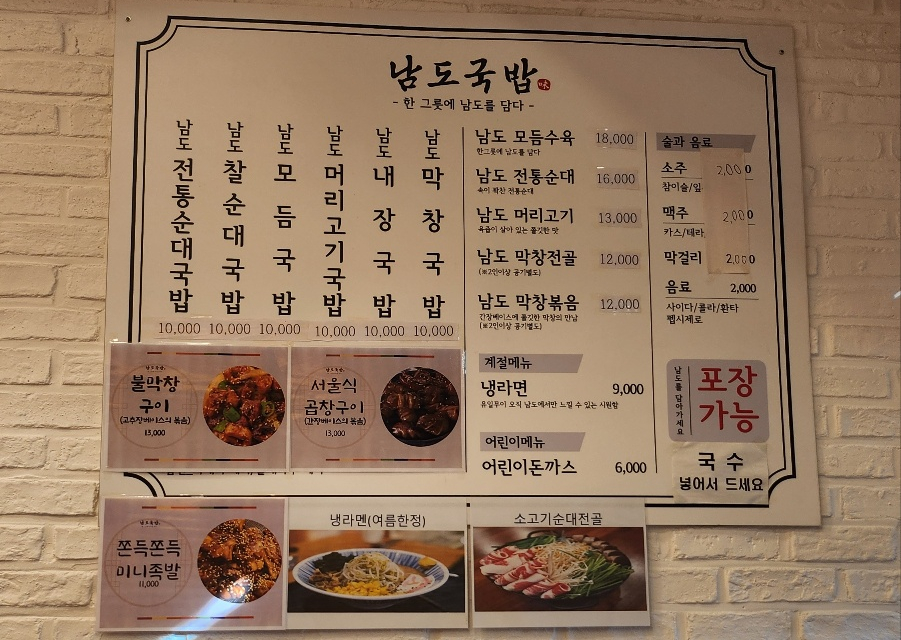 남도국밥
- 한 그릇에 남도를 담다 -
남도 전통순대국밥
10,000
남도 찰순대국밥
10,000
남도 모듬국밥
10,000
남도 머리고기국밥
10,000
남도 내장국밥
10,000
남도 막창국밥
10,000
남도 모듬수육 18,000
한그릇에 남도를 담다
남도 전통순대 16,000
속이 꽉찬 전통순대
남도 머리고기 13,000
육즙이 살아 있는 쫄깃한 맛
남도 막창전골 12,000
(※2인이상 공기별도)
남도 막창볶음 12,000
간장베이스에 쫄깃한 막창의 만남
(※2인이상 공기별도)
계절메뉴
냉라면 9,000
오직 남도에서만 느낄 수 있는 시원함
어린이메뉴
어린이돈까스 6,000
술과 음료
소주 2,000
참이슬/잎
맥주 2,000
카스/테라
막걸리 2,000
음료 2,000
사이다/콜라/환타
펩시제로
남도를 담아가세요
포장
가능
국수
넣어서 드세요
남도국밥
불막창
구이
(고추장베이스의 볶음)
13,000
남도국밥
서울식
곱창구이
(간장베이스의 볶음)
13,000
남도국밥
쫀득쫀득
미니족발
11,000
냉라멘(여름한정)
소고기순대전골